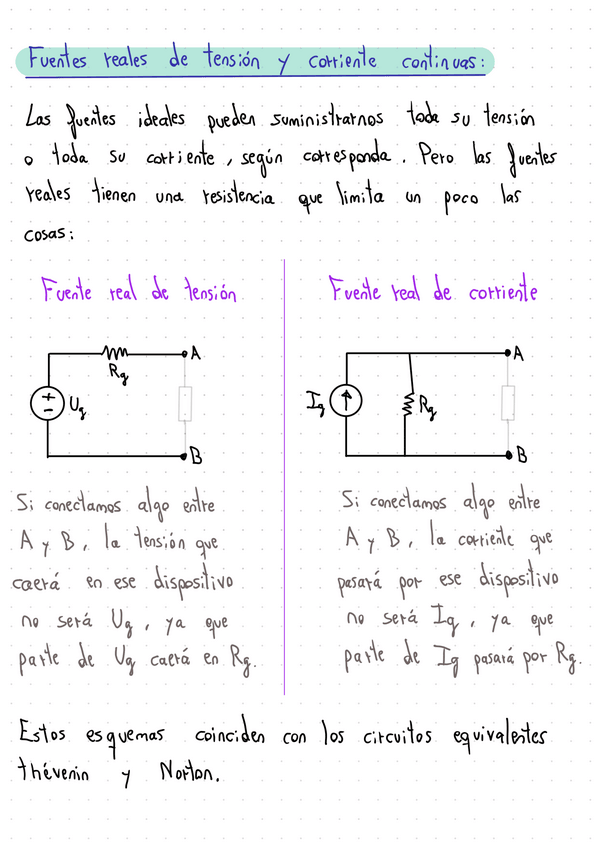 Fuentes reales de tensión y corriente continuas:
Las fuentes ideales pueden suministrarnos toda su tensión
o toda su corriente, según corresponda. Pero las fuentes
reales tienen una resistencia que limita un poco las
cosas:
Fuente real de tensión
A
Rg
+
-
Ug
B
Si conectamos algo entre
A y B, la tensión que
caerá en ese dispositivo
no será Ug, ya que
parte de Ug caerá en Rg.
Fuente real de corriente
A
Ig
Rg
B
Si conectamos algo entre
A y B, la corriente que
pasará por ese dispositivo
no será Ig, ya que
parte de Ig pasará por Rg.
Estos esquemas coinciden con los circuitos equivalentes
thévenin y Norton.